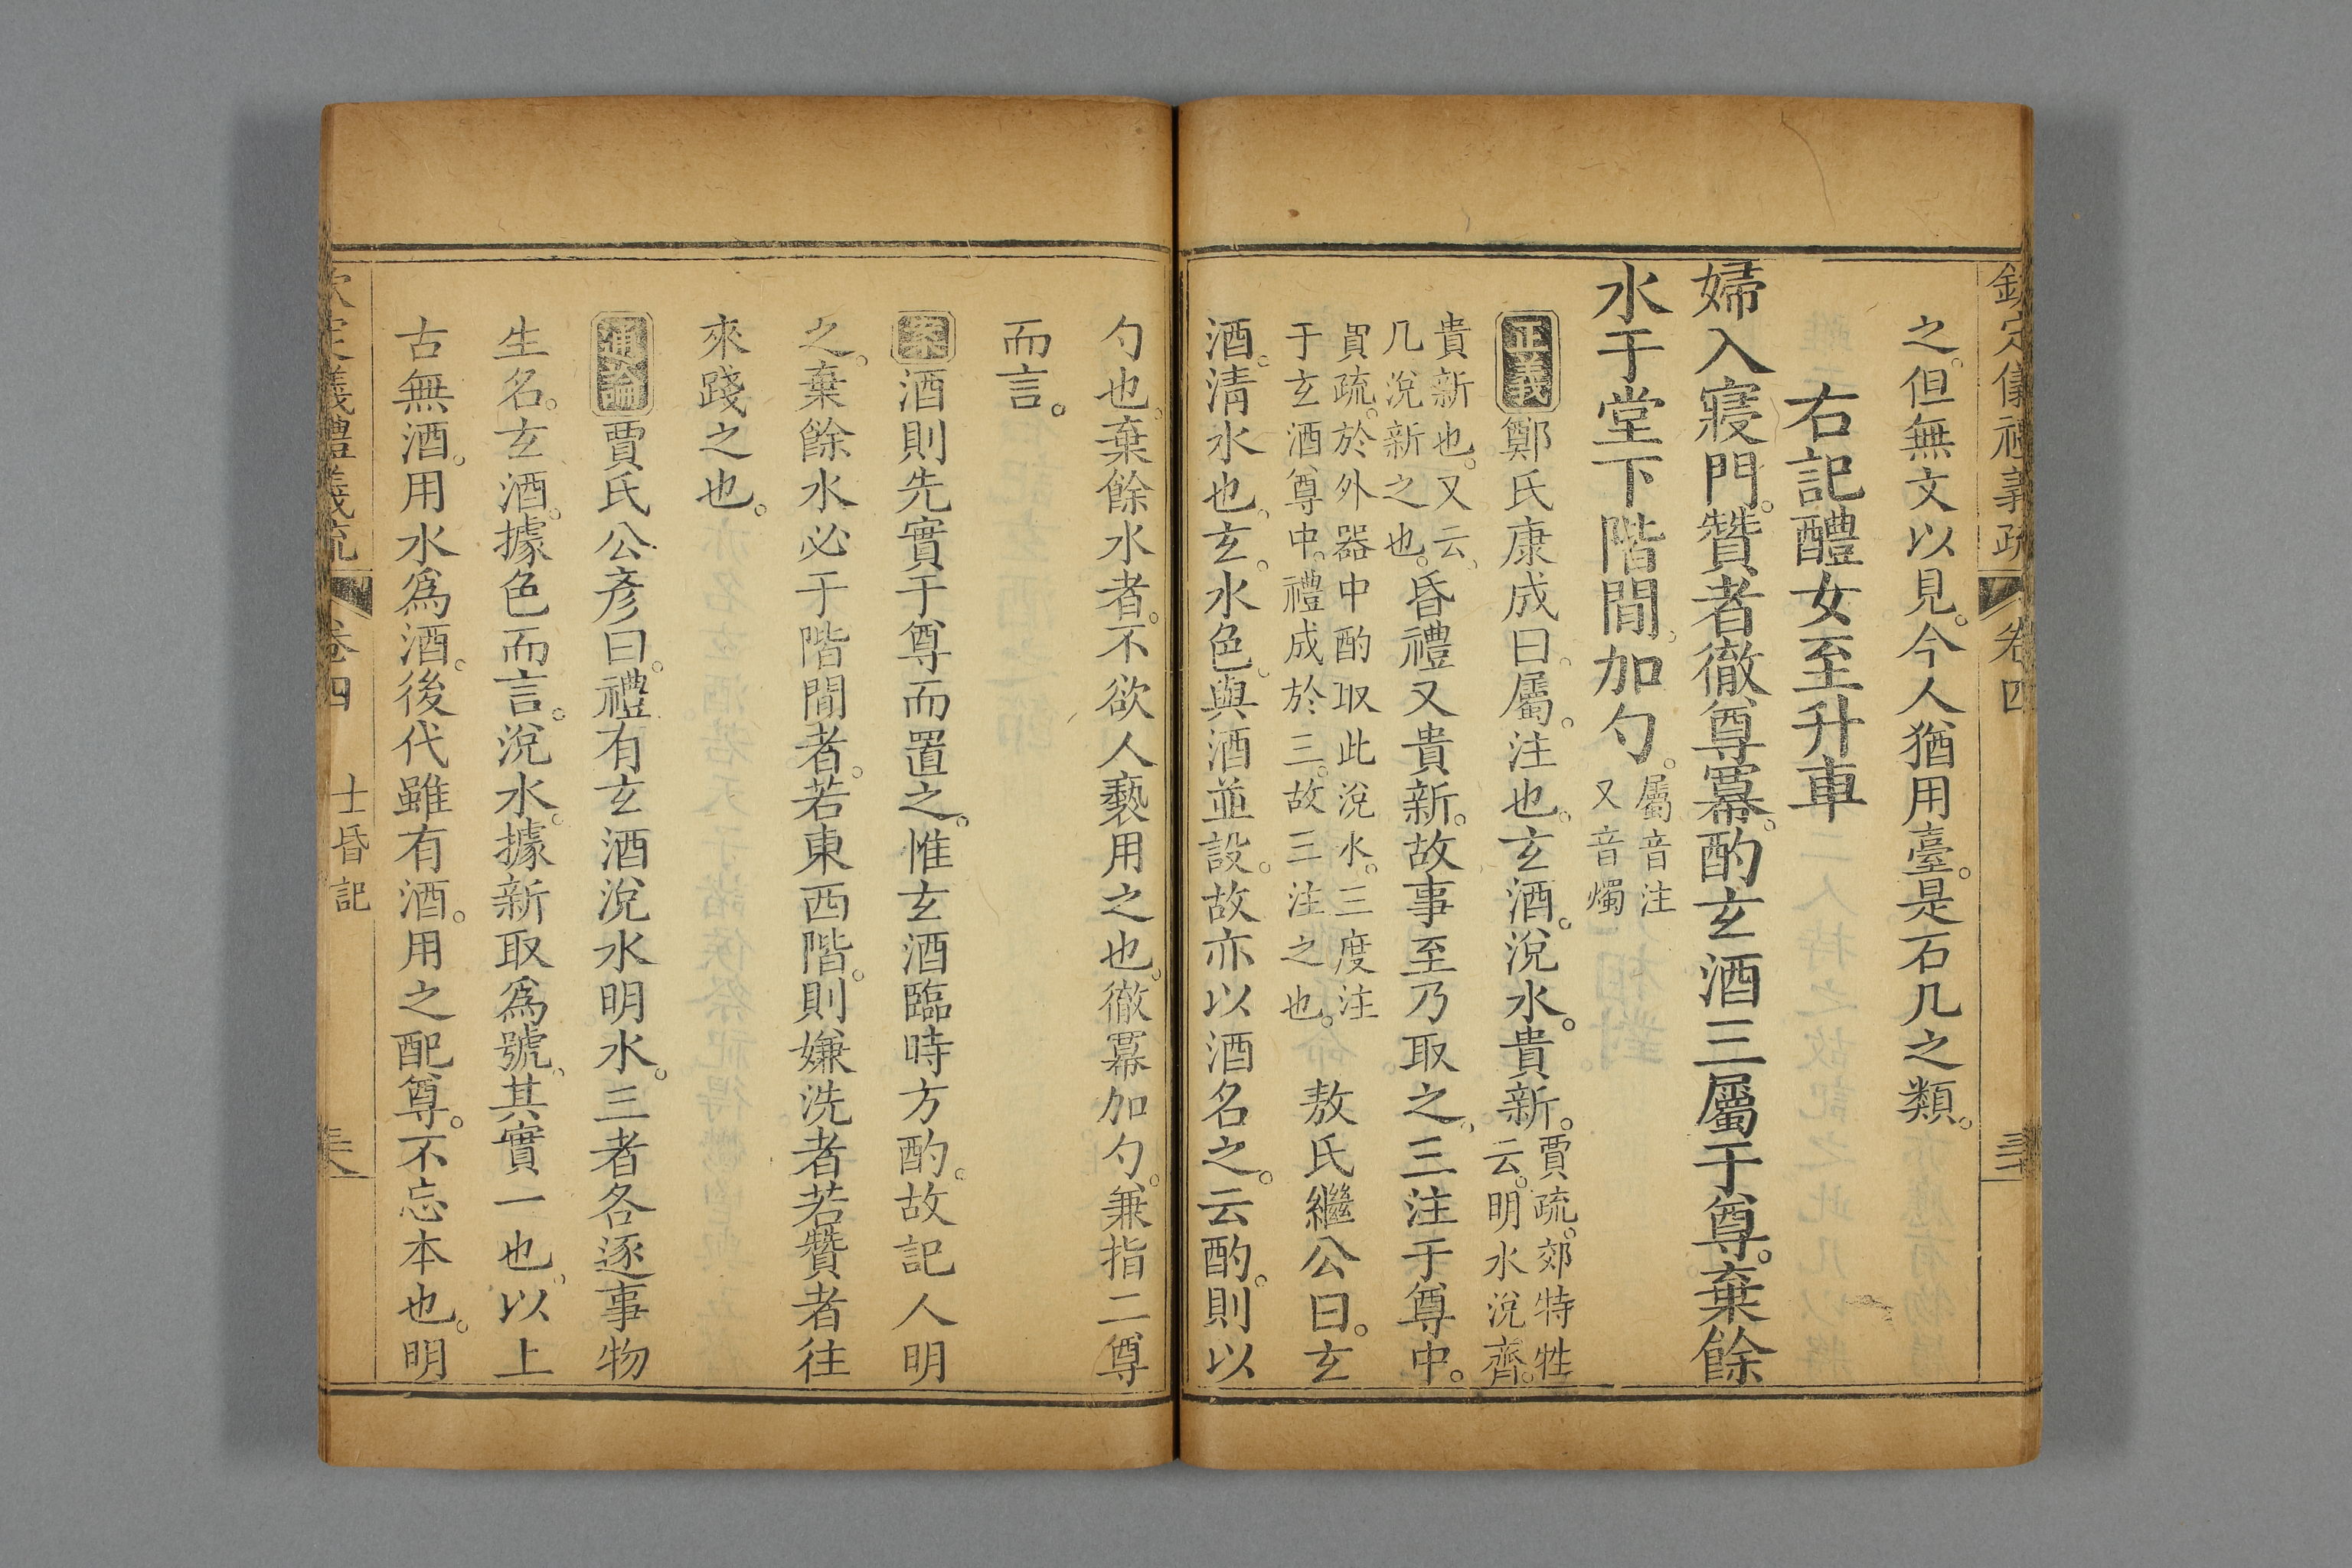 欽定儀禮義疏 卷四
之。但無文以見。今人猶用臺。是石几之類。
右記醴女至升車
婦入寢門。贊者徹尊冪。酌玄酒三屬于尊。棄餘
水于堂下階間。加勺。屬音注
又音燭
正義鄭氏康成曰。屬。注也。玄酒。涗水。貴新。賈疏。郊特牲
云。明水涗齊。
貴新也。又云。
凡涗新之也。昏禮又貴新。故事至乃取之。三注于尊中。
賈疏。於外器中酌取此涗水。三度注
于玄酒尊中。禮成於三。故三注之也。敖氏繼公曰。玄
酒。淸水也。玄。水色。與酒並設。故亦以酒名之。云酌。則以
勺也。棄餘水者。不欲人褻用之也。徹冪加勺。兼指二尊
而言。
案酒則先實于尊而置之。惟玄酒臨時方酌。故記人明
之。棄餘水必于階間者。若東西階。則嫌洗者若贊者往
來踐之也。
通論賈氏公彥曰。禮有玄酒涗水明水。三者各逐事物
生名。玄酒。據色而言。涗水。據新取爲號。其實一也。以上
古無酒。用水爲酒。後代雖有酒。用之配尊。不忘本也。明
欽定儀禮義疏 卷四 士昏記